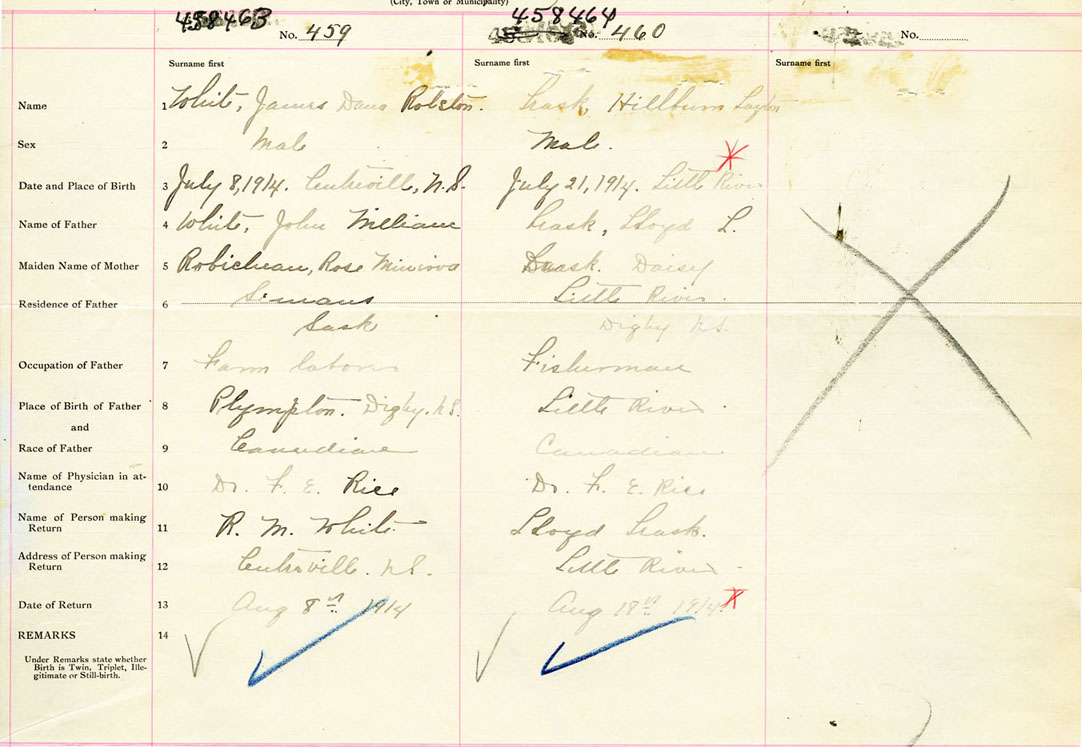 (City, Town or Municipality)
458463 458464
No. 459 No. 460 No.
Surname first Surname first Surname first
Name 1 White, James Dana Rolston. Trask, Hillburn Layton
Sex 2 Male Male.
Date and Place of Birth 3 July 8, 1914. Centreville, N.S. July 21, 1914. Little River
Name of Father 4 White, John William Trask, Lloyd L.
Maiden Name of Mother 5 Robicheau, Rose Minerva Trask. Daisy
Residence of Father 6 Simans Little River.
Sask Digby N.S.
Occupation of Father 7 Farm laborer Fisherman
Place of Birth of Father 8 Plympton. Digby. N.S. Little River.
and
Race of Father 9 Canadian Canadian
Name of Physician in at-
tendance 10 Dr. F. E. Rice Dr. F. E. Rice
Name of Person making
Return 11 R. M. White Lloyd Trask.
Address of Person making
Return 12 Centreville. N.S. Little River.
Date of Return 13 Aug 8th 1914 Aug 18th 1914.
REMARKS 14
Under Remarks state whether
Birth is Twin, Triplet, Ille-
gitimate or Still-birth.